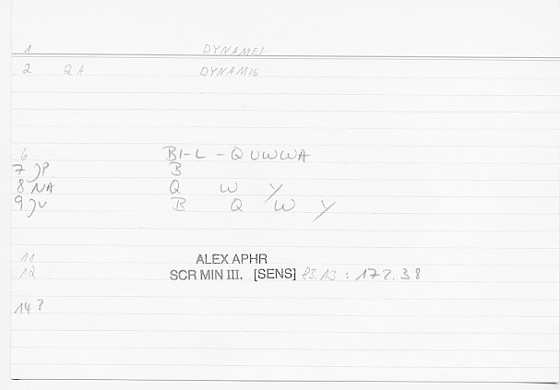 1 DYNAMEI
2 QA DYNAMIS
6 BI-L-QUWWA
7 JP B
8 NA Q W Y
9 JV B Q W Y
11 ALEX APHR
12 SCR MIN III. [SENS] 83.13 : 172.38
14 ?